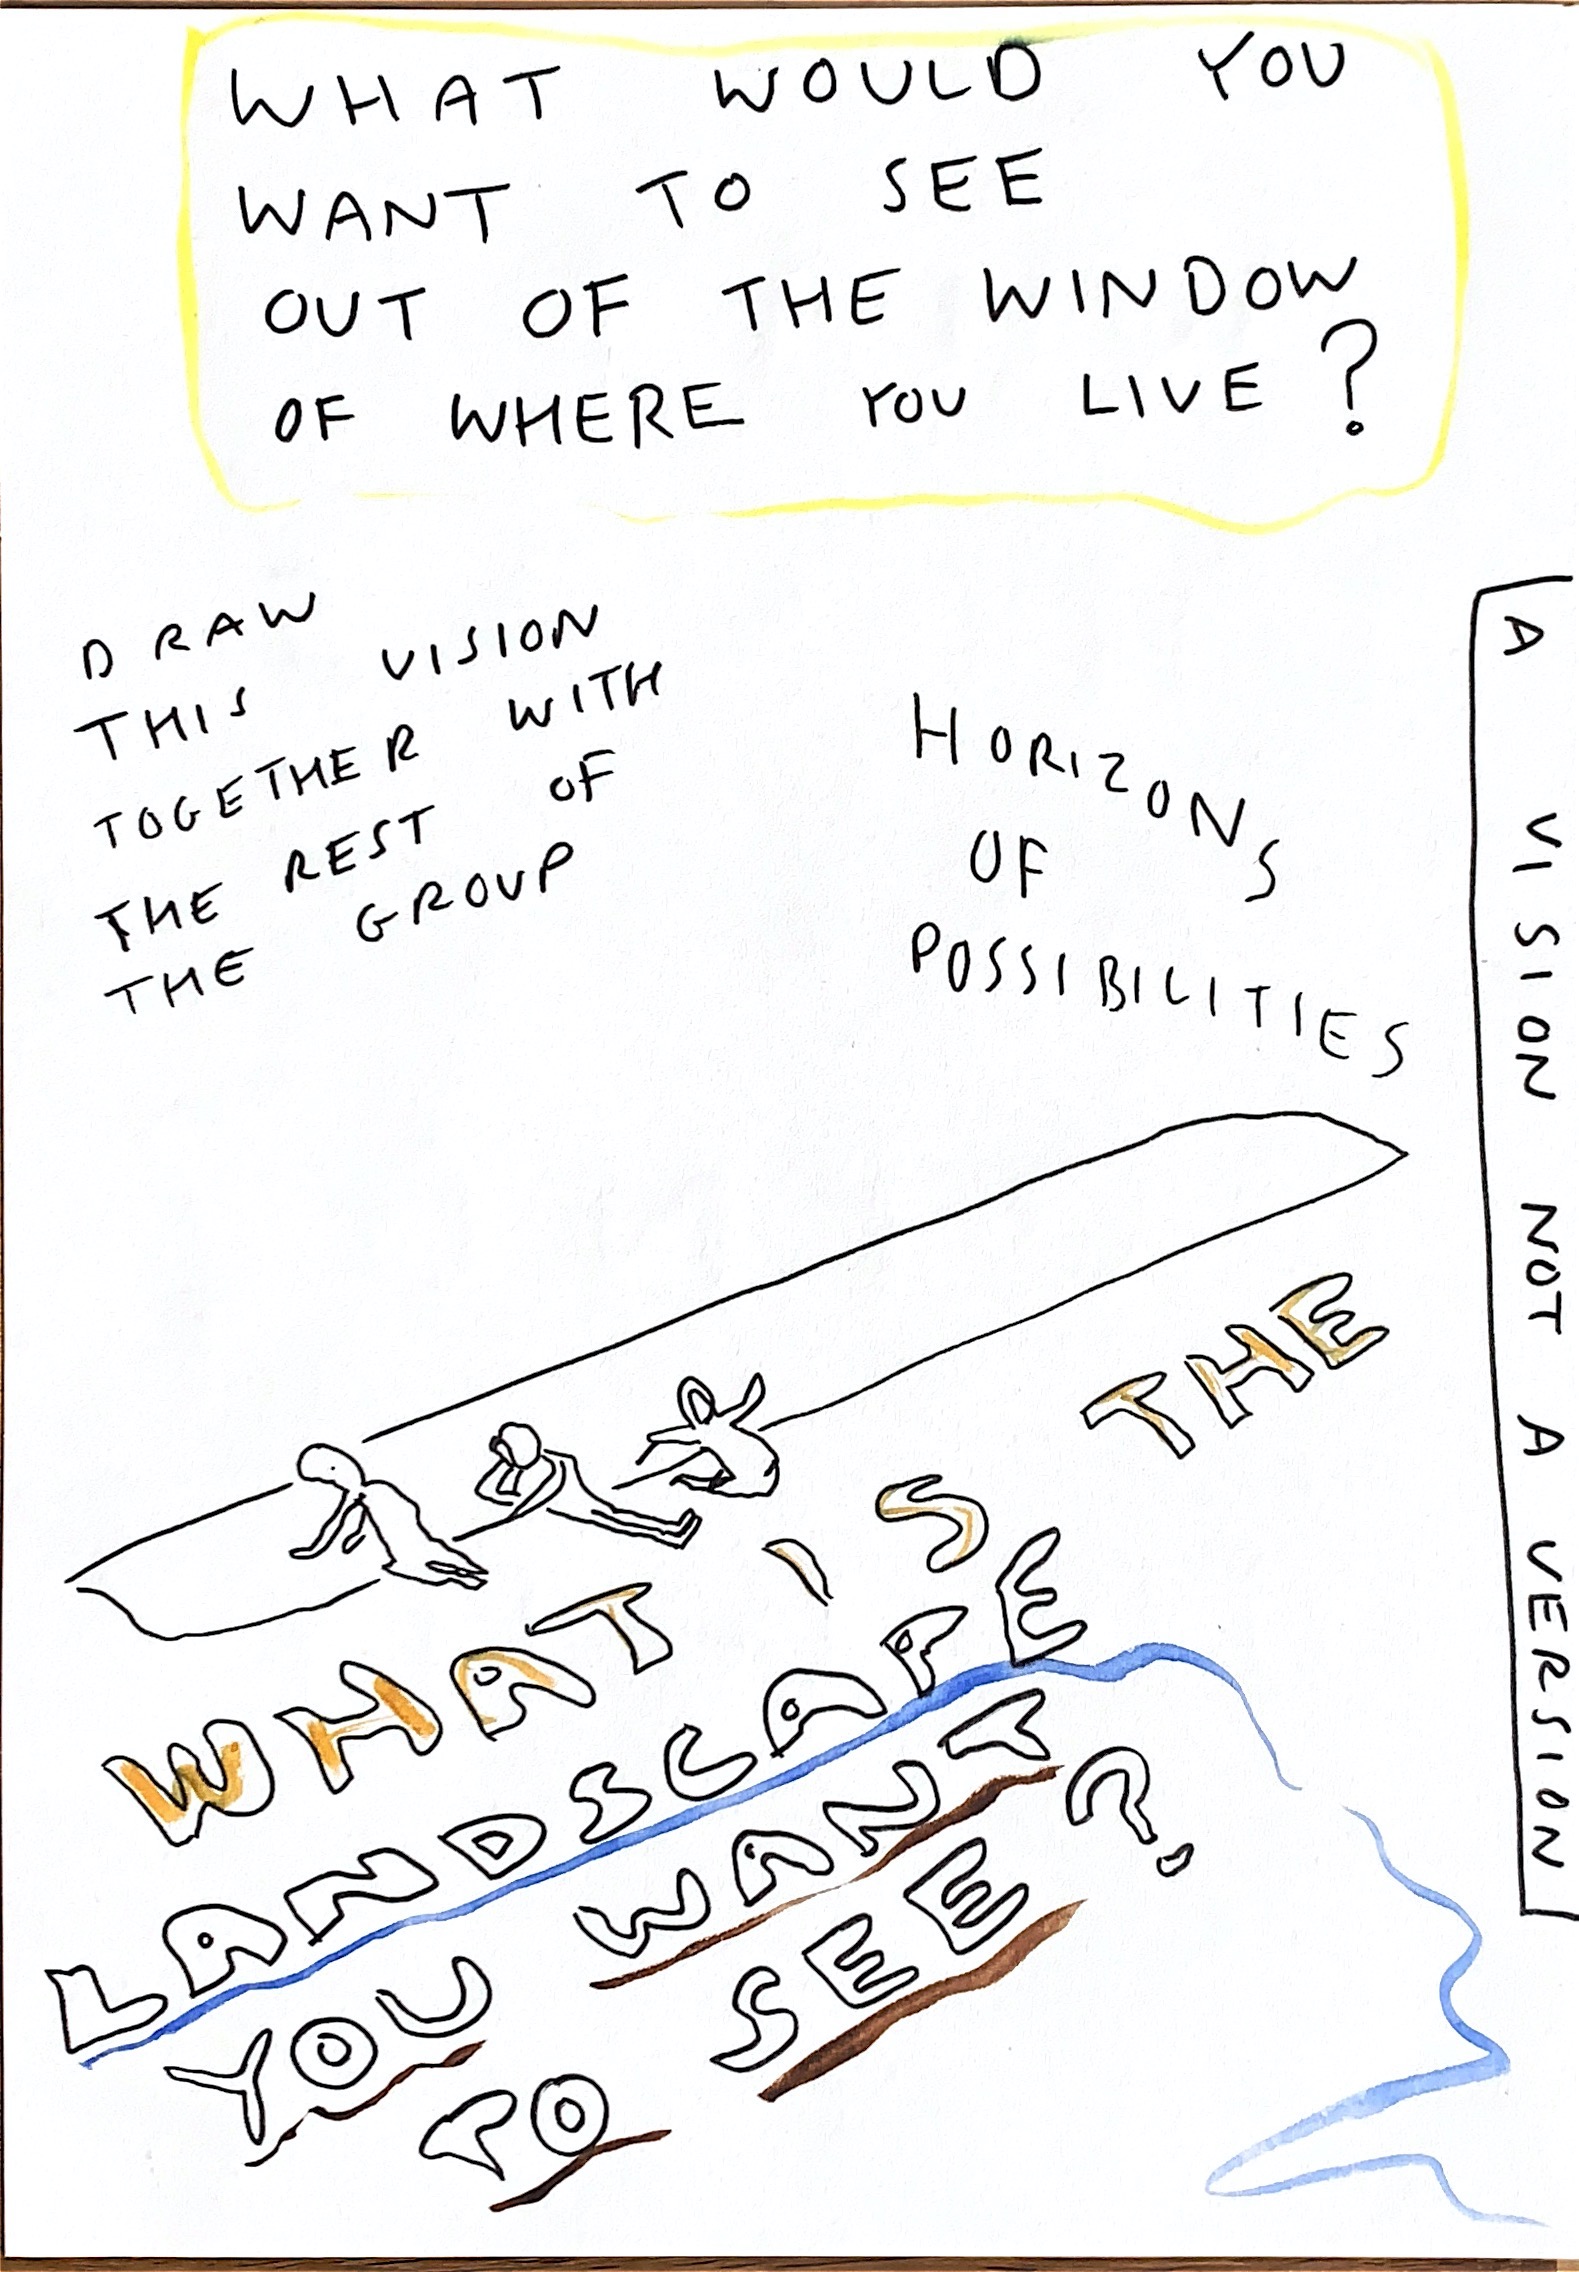 WHAT WOULD YOU
WANT TO SEE
OUT OF THE WINDOW
OF WHERE YOU LIVE?
DRAW
THIS VISION
TOGETHER WITH
THE REST OF
THE GROUP
HORIZONS
OF
POSSIBILITIES
A VISION NOT A VERSION
WHAT'S THE
LANDSCAPE
YOU WANT
TO SEE?